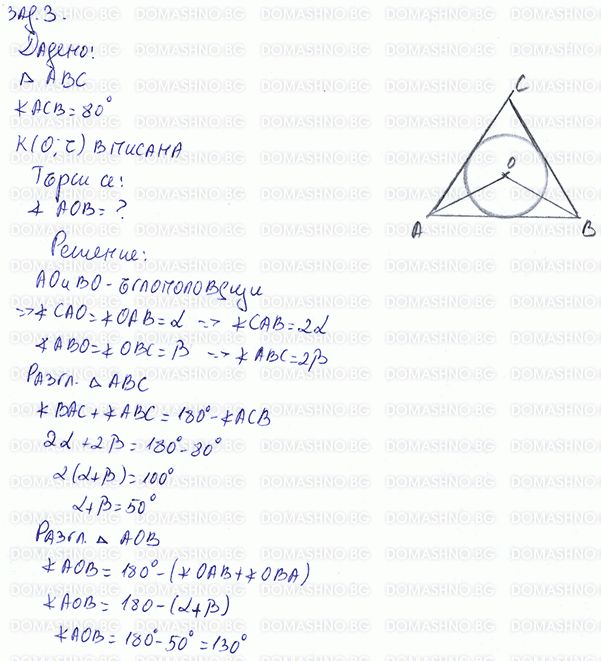 Зад. 3.
Дадено:
△ ABC
∢ACB = 80°
K(O; r) вписана
Търси се:
∢ AOB = ?
Решение:
AO и BO - ъглополовящи
=> ∢CAO = ∢OAB = α => ∢CAB = 2α
∢ABO = ∢OBC = β => ∢ABC = 2β
Разгл. △ ABC
∢BAC + ∢ABC = 180° - ∢ACB
2α + 2β = 180° - 80°
2(α+β) = 100°
α+β = 50°
Разгл. △ AOB
∢AOB = 180° - (∢OAB + ∢OBA)
∢AOB = 180 - (α+β)
∢AOB = 180° - 50° = 130°
C
O
A
B
DOMASHNO.BG